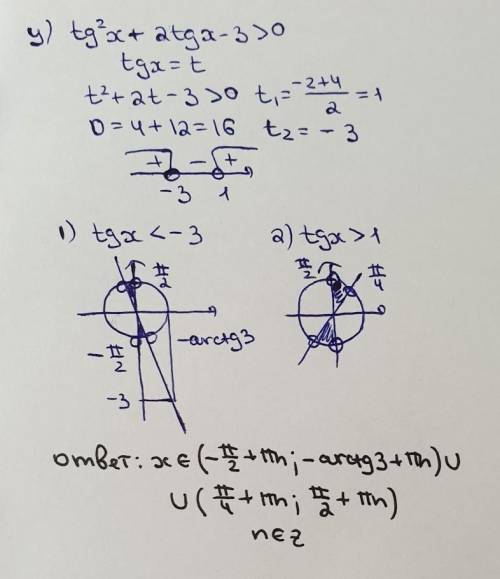 у) tg²x + 2tgx - 3 > 0
tgx = t
t² + 2t - 3 > 0 t₁ = (-2+4)/2 = 1
D = 4 + 12 = 16 t₂ = -3
+ - +
-3 1
1) tgx < -3 2) tgx > 1
π/2 π/2 π/4
-π/2 -arctg3
-3
ответ: x ∈ (-π/2 + πn; -arctg3 + πn) ∪
∪ (π/4 + πn; π/2 + πn)
n ∈ z